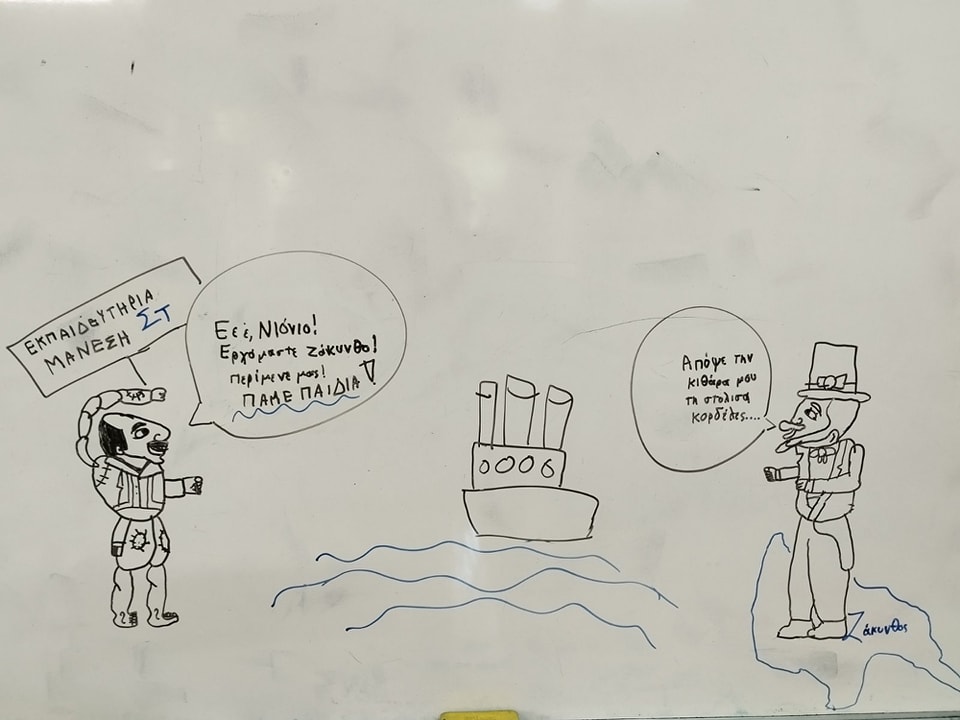 ΕΚΠΑΙΔΕΥΤΗΡΙΑ
ΜΑΝΕΣΗ ΣΤ
Εεέ, Νιόνιο!
Ερχόμαστε Ζάκυνθο!
περίμενε μας!
ΠΑΜΕ ΠΑΙΔΙΑ!
Απόψε την
κιθάρα μου
τη στόλισα
κορδέλες....
Ζάκυνθος